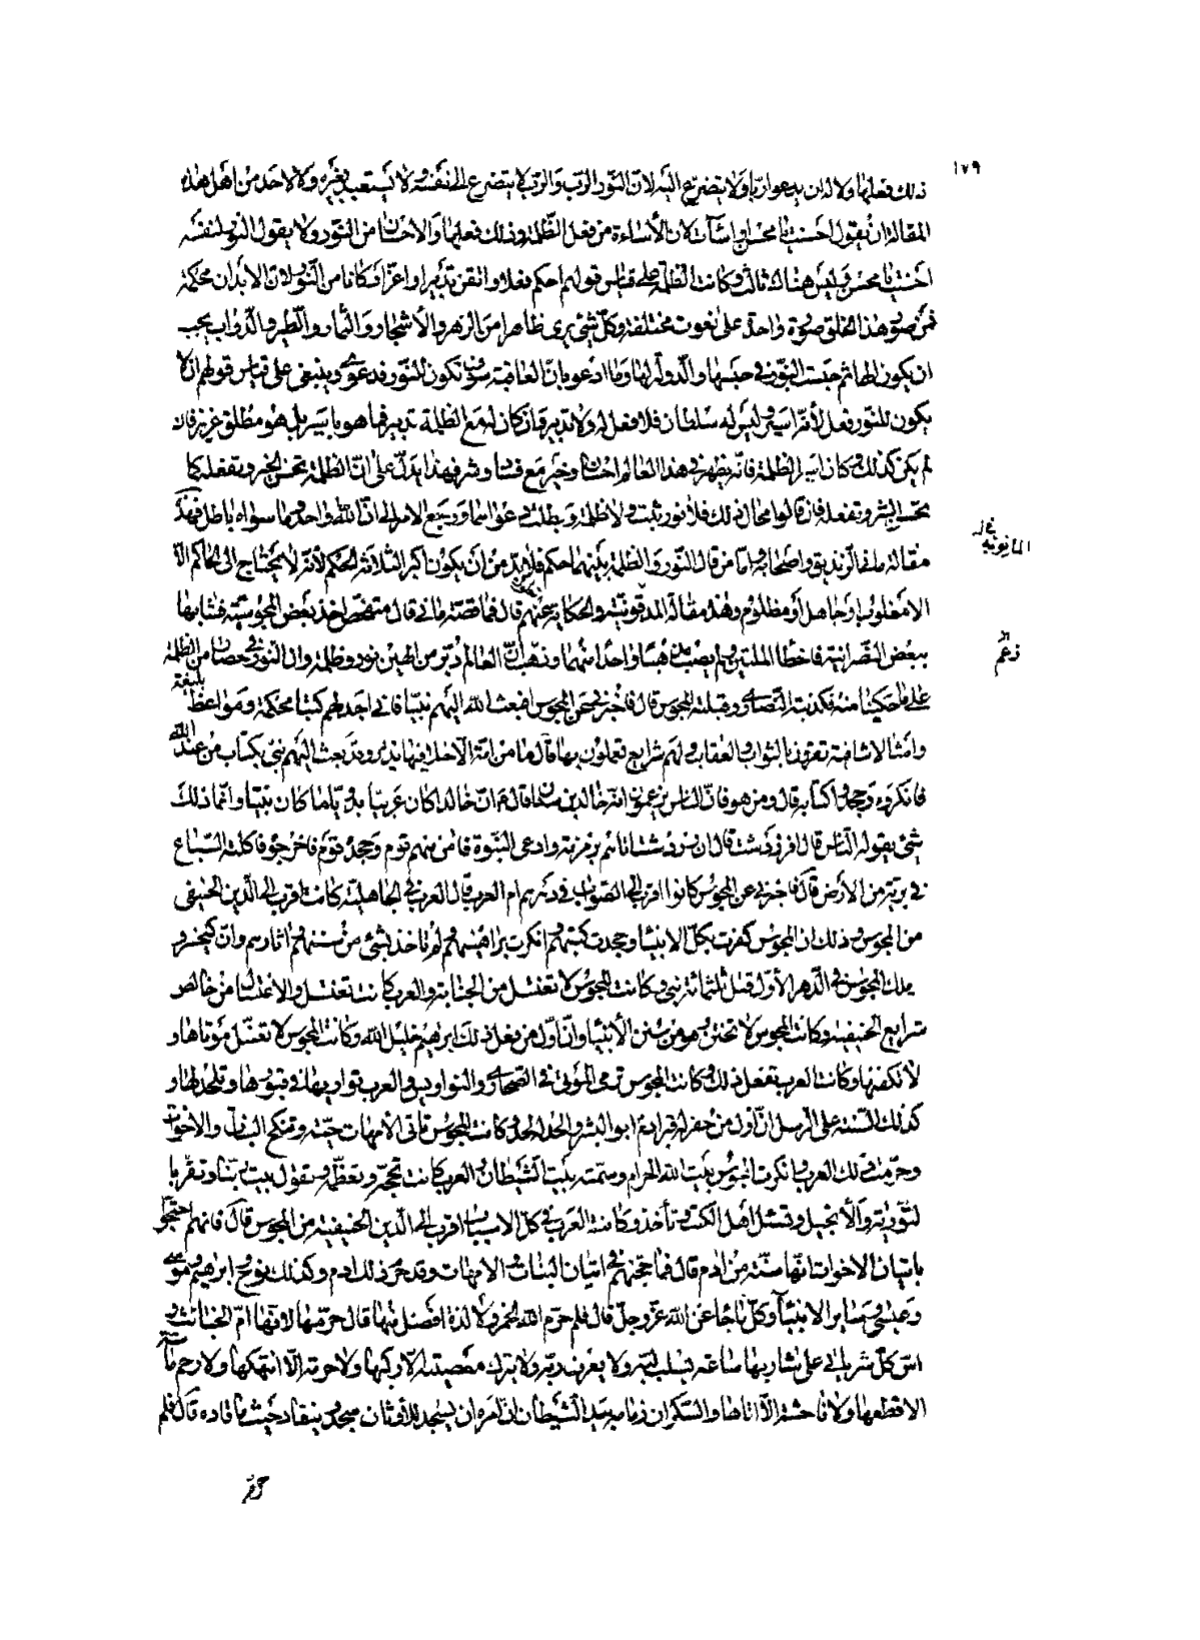 ١٧٩
ذلك فعلها ولا له ان يدعو ربا ولا يتضرع اليه لان النور الرب والرب لا يتضرع الى نفسه ولا يستعبد بغيره ولا لاحد من اهل هذه
المقالة ان يقول احسنت يا محسن او اسأت لان الأساءة من فعل الظلمة وذلك فعلها والاحسان من النور ولا يقول النور لنفسه
احسنت يا محسن وليس هناك ثالث وكانت الظلمة على قياس قولهم احكم فعلا واتقن تدبيرا واعز اركانا من النور لان الابدان محكمة
فمن صور هذا الخلق صورة واحدة على نعوت مختلفة وكل شئ يرى ظاهرا من الزهر والأشجار والثمار والطير والدواب يجب
ان يكون الها ثم حبست النور في حبسها والدولة لها وما ادعوه بان العاقبة سوف تكون للنور فدعوى وينبغي على قياس قولهم ان لا
يكون للنور فعل لأنه اسير وليس له سلطان فلا فعل له ولا تدبير وان كان له مع الظلمة تدبير فما هو باسير بل هو مطلق عزيز فان
لم يكن كذلك وكان اسير الظلمة فانه يظهر في هذا العالم احسان وخير مع فساد وشر فهذا يدل على ان الظلمة تحسن الخير وتفعله كما
تحسن الشر وتفعله فان قالوا محال ذلك فلا نور يثبت ولا ظلمة وبطلت دعواهم ورجع الامر الى ان الله واحد وما سواه باطل فهذه
في المانوية
مقالة ماني الزنديق واصحابه واما من قال النور والظلمة بينهما حكم فلا بد من ان يكون اكبر الثلاثة الحكم لأنه لا يحتاج الى الحاكم الا
الا مغلوب او جاهل أو مظلوم وهذه مقالة المدقونية والحكاية عنهم تطول قال فما قصة ماني قال متفحص اخذ بعض المجوسية فشابها
ببعض النصرانية فاخطا الملتين ولم يصب مذهبا واحدا منهما وزعم ان العالم دبر من الهين نور وظلمة وان النور في حصار من الظلمة
على ما حكينا منه فكذبته النصارى وقبلته المجوس قال فاخبرني عن المجوس افبعث الله اليهم نبيا فاني اجد لهم كتبا محكمة ومواعظ بليغة
وامثالا شافية تقرون بالثواب والعقاب ولهم شرايع يعملون بها قال ما من امة الا خلا فيها نذير وقد بعث اليهم نبي بكتاب من عند الله
فانكروه وجحدوا كتابه قال ومن هو فان الناس يزعمون انه خالد بن سنان قال ان خالدا كان عربيا بدويا ما كان نبيا وانما ذلك
شئ يقوله الناس قال افزردشت قال ان زردشت اتاهم بزمزمة وادعى النبوة فامن منهم قوم وجحده قوم فاخرجوه فاكلته السباع
في برية من الأرض قال فاخبرني عن المجوس كانوا اقرب الى الصواب في دهرهم ام العرب قال العرب في الجاهلية كانت اقرب الى الدين الحنيفي
من المجوس وذلك ان المجوس كفرت بكل الانبياء وجحدت كتبهم وانكرت براهينهم ولم تاخذ بشئ من سننهم واثارهم وان كيخسرو
ملك المجوس في الدهر الأول قتل ثلثمائة نبي وكانت المجوس لا تغتسل من الجنابة والعرب كانت تغتسل والاغتسال من خالص
شرايع الحنيفية وكانت المجوس لا تختتن وهو من سنن الأنبياء وان اول من فعل ذلك ابراهيم خليل الله وكانت المجوس لا تغسل موتاها و
لا تكفنها وكانت العرب تفعل ذلك وكانت المجوس ترمى الموتى في الصحارى والنواويس والعرب تواريها في قبورها وتلحد لها و
كذلك السنة على الرسل ان اول من حفر له قبر ادم ابو البشر والحد له لحد وكانت المجوس تاتى الأمهات وتنكح البنات والاخوات
وحرمت ذلك العرب وانكرت المجوس بيت الله الحرام وسمته بيت الشيطان والعرب كانت تحجه وتعظمه وتقول بيت ربنا وتقر با
لتورية والأنجيل وتسئل اهل الكتب وتأخذ وكانت العرب في كل الاسباب اقرب الى الدين الحنيفية من المجوس قال فانهم احتجوا
باتيان الاخوات انها سنة من ادم قال فما حجتهم في اتيان البنات والامهات وقد حرم ذلك ادم وكذلك نوح وابراهيم وموسى
وعيسى وساير الانبياء وكل ما جاء عن الله عز وجل قال فلم حرم الله الخمر ولا لذة افضل منها قال حرمها لانها ام الخبائث و
اس كل شر ياتي على شاربها ساعة يسلب لبه ولا يعرف ربه ولا يترك معصية الا ركبها ولا حرمة الا انتهكها ولا رحم ماسة
الا قطعها ولا فاحشة الا اتاها والسكران زمامه بيد الشيطان ان امره ان يسجد للأوثان سجد وينقاد حيث ما قاده قال فلم
حرم